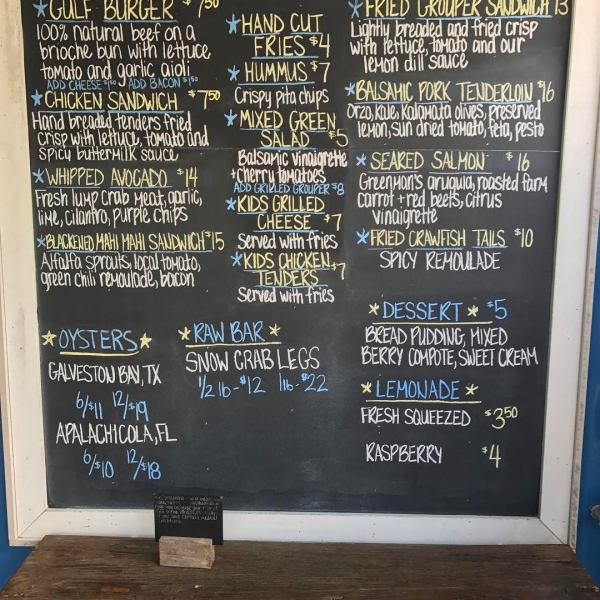 GULF BURGER $7.50
100% natural beef on a
brioche bun with lettuce
tomato and garlic aioli
ADD CHEESE $1.50 ADD BACON $1.50
CHICKEN SANDWICH $7.50
Hand breaded tenders fried
crisp with lettuce, tomato and
spicy buttermilk sauce
WHIPPED AVOCADO $14
Fresh lump crab meat, garlic,
lime, cilantro, purple chips
BLACKENED MAHI MAHI SANDWICH $15
Alfalfa sprouts, local tomato,
green chili remoulade, bacon
OYSTERS
GALVESTON BAY, TX
6/$11 12/$19
APALACHICOLA, FL
6/$10 12/$18
HAND CUT
FRIES $4
HUMMUS $7
Crispy pita chips
MIXED GREEN
SALAD $5
Balsamic vinaigrette
+ cherry tomatoes
ADD GRILLED GROUPER $8
KIDS GRILLED
CHEESE $7
Served with fries
KIDS CHICKEN
TENDERS $7
Served with fries
RAW BAR
SNOW CRAB LEGS
1/2 lb - $12 1lb - $22
FRIED GROUPER SANDWICH 13
Lightly breaded and fried crisp
with lettuce, tomato and our
lemon dill sauce
BALSAMIC PORK TENDERLOIN $16
Orzo, kale, kalamata olives, preserved
lemon, sun dried tomato, feta, pesto
SEARED SALMON $16
Greenman's arugula, roasted farm
carrot + red beets, citrus
vinaigrette
FRIED CRAWFISH TAILS $10
SPICY REMOULADE
DESSERT $5
BREAD PUDDING, MIXED
BERRY COMPOTE, SWEET CREAM
LEMONADE
FRESH SQUEEZED $3.50
RASPBERRY $4